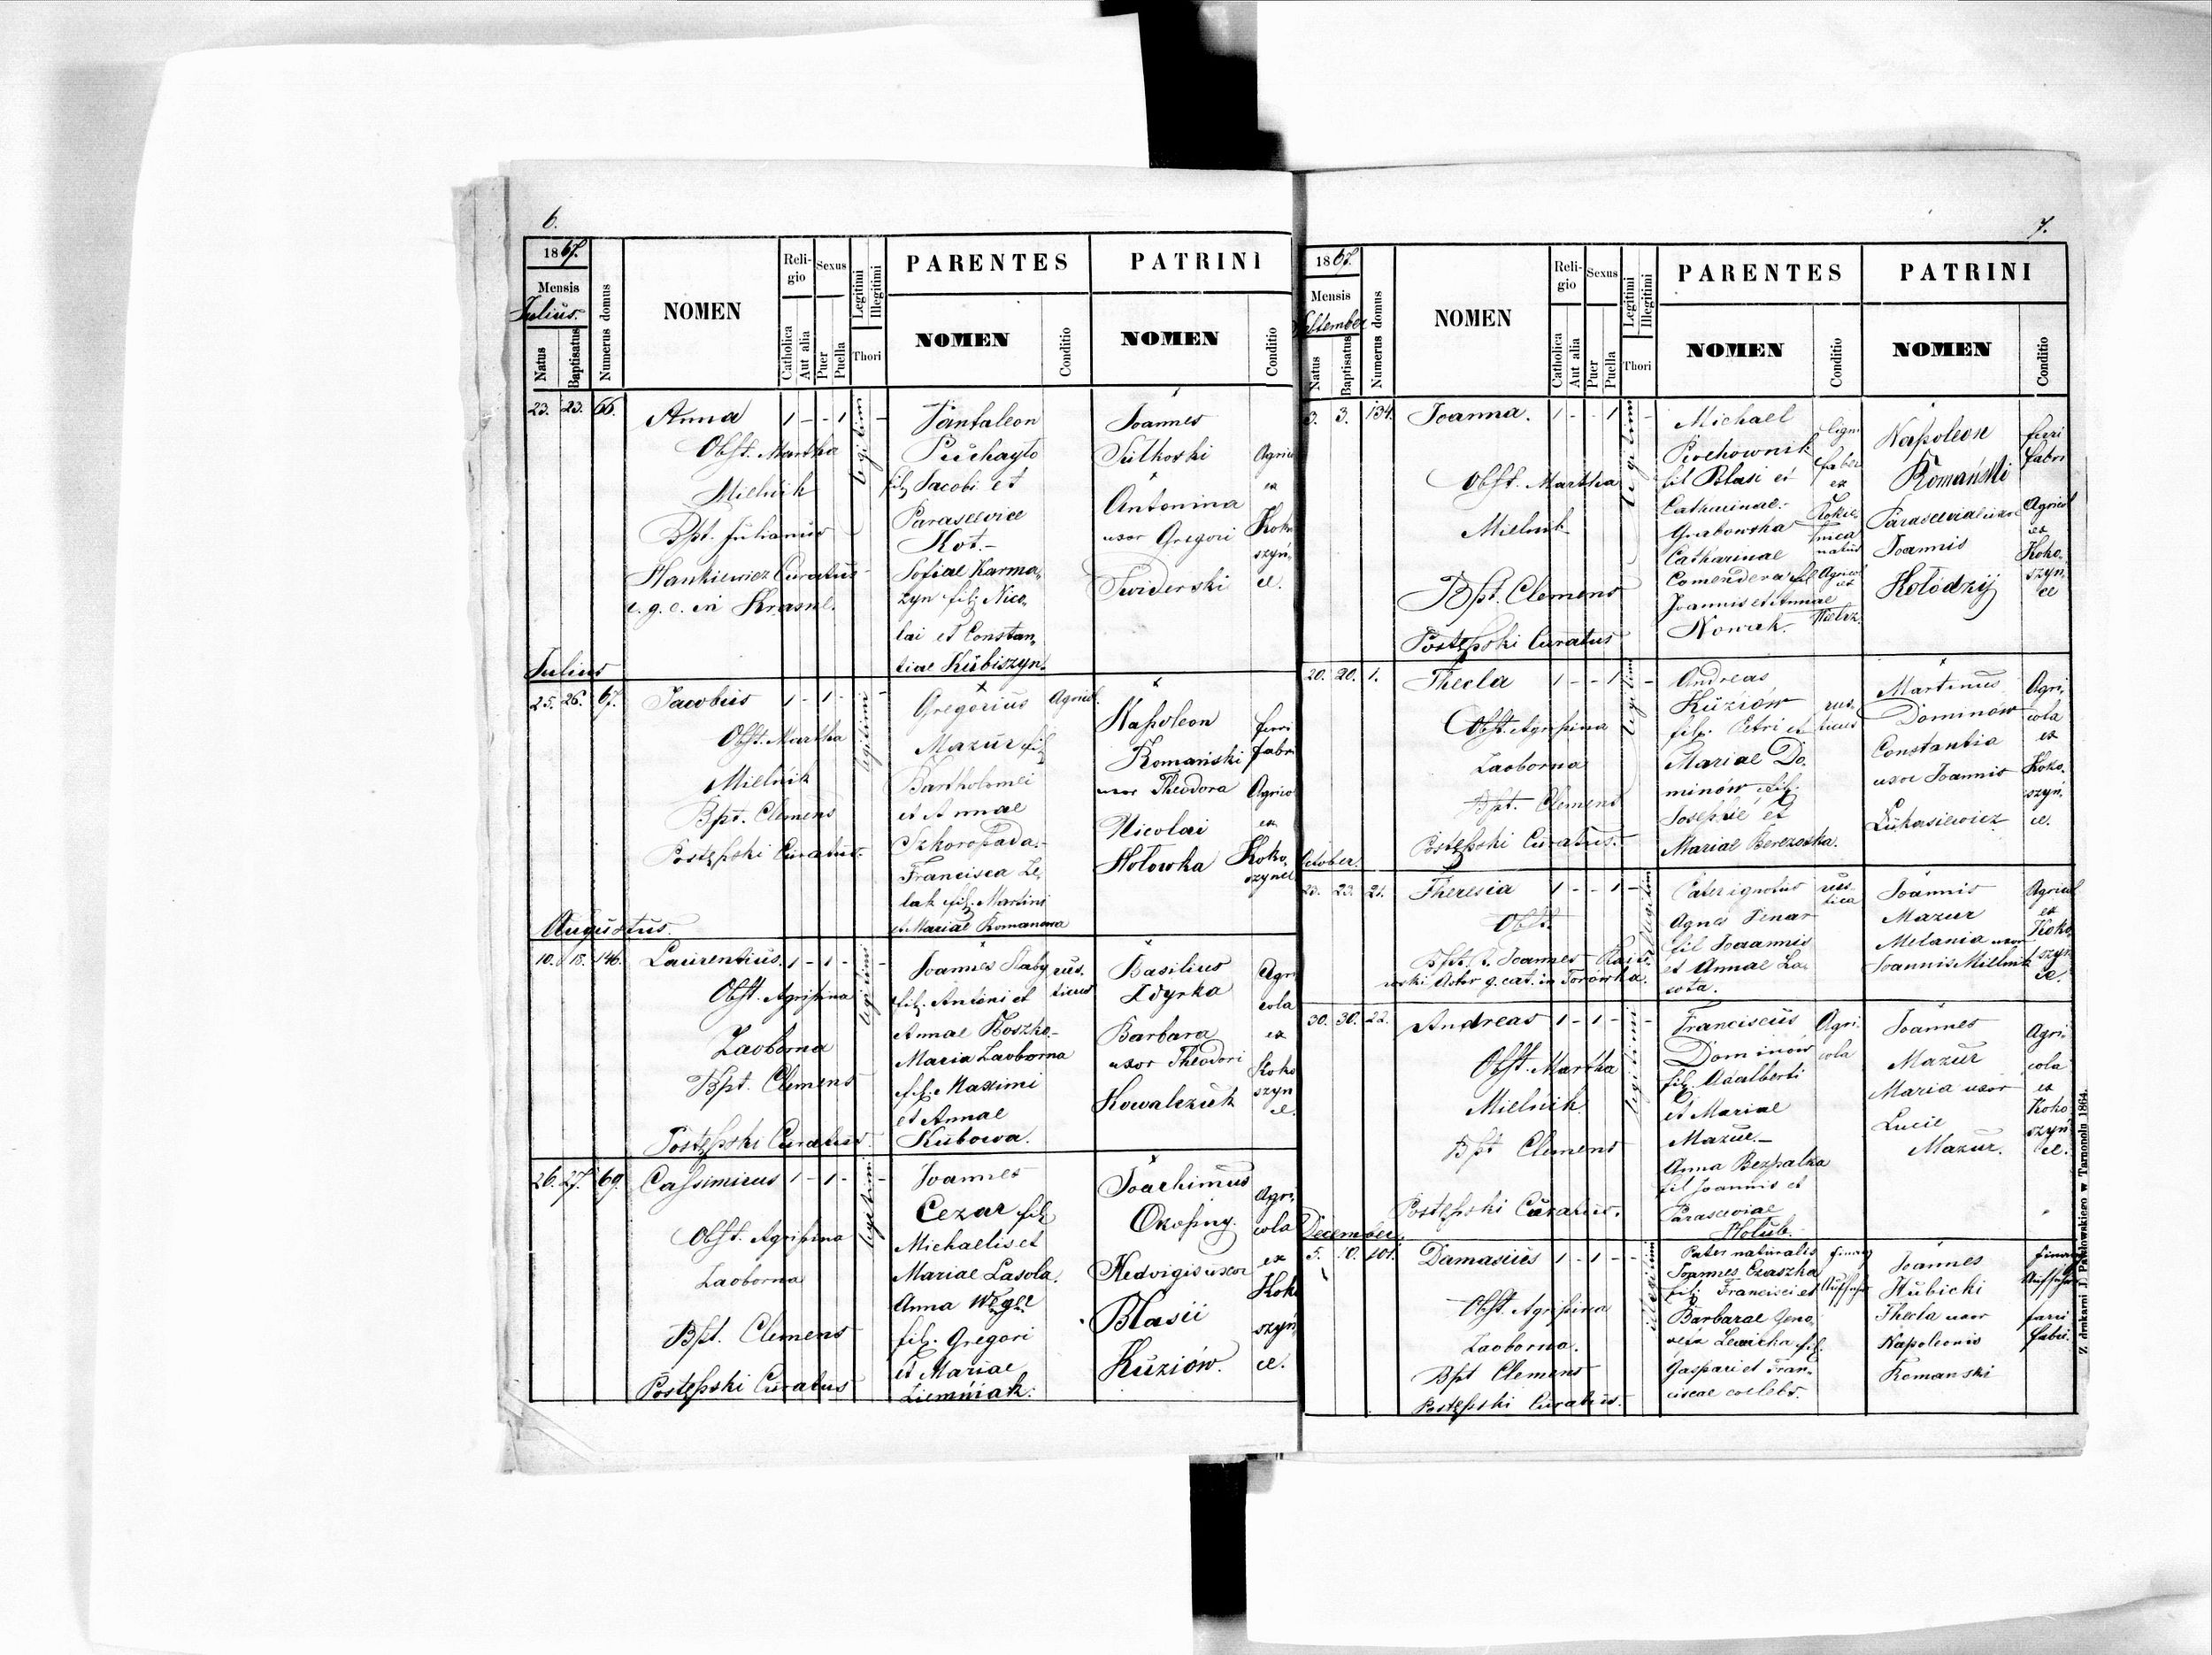 6.
1867.
Mensis
Julius.
Natus
Baptisatus
Numerus domus
NOMEN
Reli-
gio
Catholica
Aut alia
Sexus
Puer
Puella
Legitimi
Illegitimi
Thori
PARENTES
NOMEN
Conditio
PATRINI
NOMEN
Conditio
23. 23. 66.
Anna 1 - - 1 -
Obst. Martha
Mielnik
Bpt. Julianus
Hankiewicz Curatus
r. g. c. in Krasne.
legitimi
Pantaleon
Puchayło
filj Jacobi et
Parascevice
Kot.-
Sofiae Karma„
zyn filj Nico„
lai et Constan„
tiae Kubiszyn.
Joannes
Sutkoski
Antonina
uxor Gregori
Swiderski
Agrico
ex
Koko
szyń„
ce.
Julius
25. 26. 67.
Jacobus 1 - 1 - -
Obst. Martha
Mielnik
Bpt. Clemens
Postępski Curatus.
legitimi
Gregorius
Mazur filj
Bartholomei
et Annae
Szkoropada.-
Francisca Le„
lak filj. Martini
et Mariae Romanowa
Agricol.
Napoleon
Romański
uxor Theodora
Nicolai
Hołowka
ferri
fabri
Agrico
ex
Koko„
szyńce
Augustus.
10. 18. 146.
Laurentius. 1 - 1 - -
Obst. Agripina
Zaoborna
Bpt. Clemens
Postępski Curatus.
legitimi
Joannes Słaby
filj. Antoni et
Annae Koszko-
Maria Zaoborna
filj. Maximi
et Annae
Kubowa.
rus.
ticus
Basilius
Zdyrka
Barbara
uxor Theodori
Kowalczuk
Agri
cola
ex
Koko
szyn
ce.
26. 27. 69.
Cassimirus 1 - 1 - -
Obst. Agripina
Zaoborna
Bpt. Clemens
Postępski Curatus
legitimi
Joannes
Cezar filj
Michaelis et
Mariae Lasota.
Anna
filj. Gregori
et Mariae
Ziemniak.
Joachimus
Okopny.
Hedvigis uxor
Blasii
Kuziów.
Agri„
cola
ex
Koko
szyń
ce.
7.
1867.
Mensis
September
Natus
Baptisatus
Numerus domus
NOMEN
Reli-
gio
Catholica
Aut alia
Sexus
Puer
Puella
Legitimi
Illegitimi
Thori
PARENTES
NOMEN
Conditio
PATRINI
NOMEN
Conditio
3. 3. 134.
Joanna. 1 - - 1 -
Obst. Martha
Mielnik
Bpt. Clemens
Postępski Curatus
legitimi
Michael
Piechownik
fil Blasi et
Catharinae.
Grabowska
Catharinae
Comendera fil
Joannis et Annae
Nowak.
lign
faber
ex
natus
Agricol
et
Napoleon
Romański
Parascevia uxor
Joannis
Kołodzij
ferri
fabri
Agricol
ex
Koko.
szyń,
ce
20. 20. 1.
Thecla 1 - - 1 -
Obst. Agripina
Zaoborna
Bpt. Clemens
Postępski Curatus.
legitimi
Andreas
Kuziów
filj. Petri et
Mariae Do„
minów filj.
Josephi et
Mariae Berezoska.
rus.
ticus
Martinus
Dominów
Constantia
uxor Joannis
Łukasiewicz
Agri„
cola
ex
Koko„
szyń.
ce.
October.
23. 23. 21.
Theresia 1 - - 1 -
Obst.
Bpt. R. Joannes
g. cat. in Torówka.
illegitimi
Pater ignotus
Agnes Penar
fil Joannis
et Annae La„
sota.
rus-
tica
Joannis
Mazur
Melania uxor
Joannis Mielnik
Agricol
ex
Koko
szyń
ce.
30. 30. 22.
Andreas 1 - 1 - -
Obst. Martha
Mielnik
Bpt Clemens
Postępski Curatus.
legitimi
Franciscus
Dominów
filj. Adalberti
et Mariae
Mazur.-
Anna Bezpalka
fil Joannis et
Parasceviae
Holub.
Agri.
cola
Joannes
Mazur
Maria uxor
Lucie
Mazur.
Agri„
cola
ex
Koko
szyń
ce.
December.
5. 10. 101.
Damascus 1 - 1 - -
Obst. Agripina
Zaoborna.
Bpt Clemens
Postępski Curatus.
illegitimi
Pater naturalis
Joannes Czaszka
filj Francisci et
Barbarae Geno„
vefa Lewicka fil.
Gaspari et Fran„
ciscae coelebs.
Finanz
Aufseher
Joannes
Hubicki
Thecla uxor
Napoleonis
Romanski
finanz
Aufseher
ferri
fabri.
Z drukarni J. Pawłowskiego w Tarnopolu 1864.